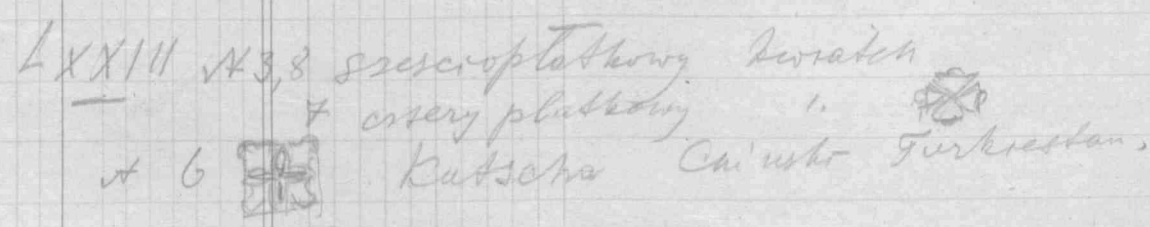 LXXIII N 3,8 sześciopłatkowy kwiatek
7 cztery płatkowy ".
N 6 Kutscha Chiński Turkiestan.